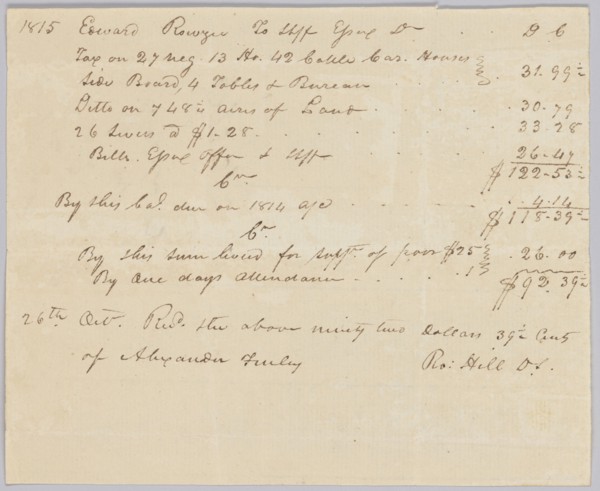 1815 Edward Rowzee To Shff Essex Dr . . . D C
Tax on 27 neg. 13 Ho. 42 Cattle Car. Houses
Side Board, 4 Tables & Bureau . 31.99½
Ditto on 748½ acres of Land . . 30-79
26 Levies @ $1-28 . . . . . 33.28
Bill. Essex Offr & Shff . . . 26-47
$122-53½
Cr
By this Bal. due on 1814 a/c . . . . 4.14
$118-39½
Cr
By this sum levied for suppt. of poor $25 . 26.00
By one days attendance . . . . 1
$92.39½
26th Octr. Recd. the above ninety two Dollars 39½ Cents
of Alexander Finley Ro: Hill DS.